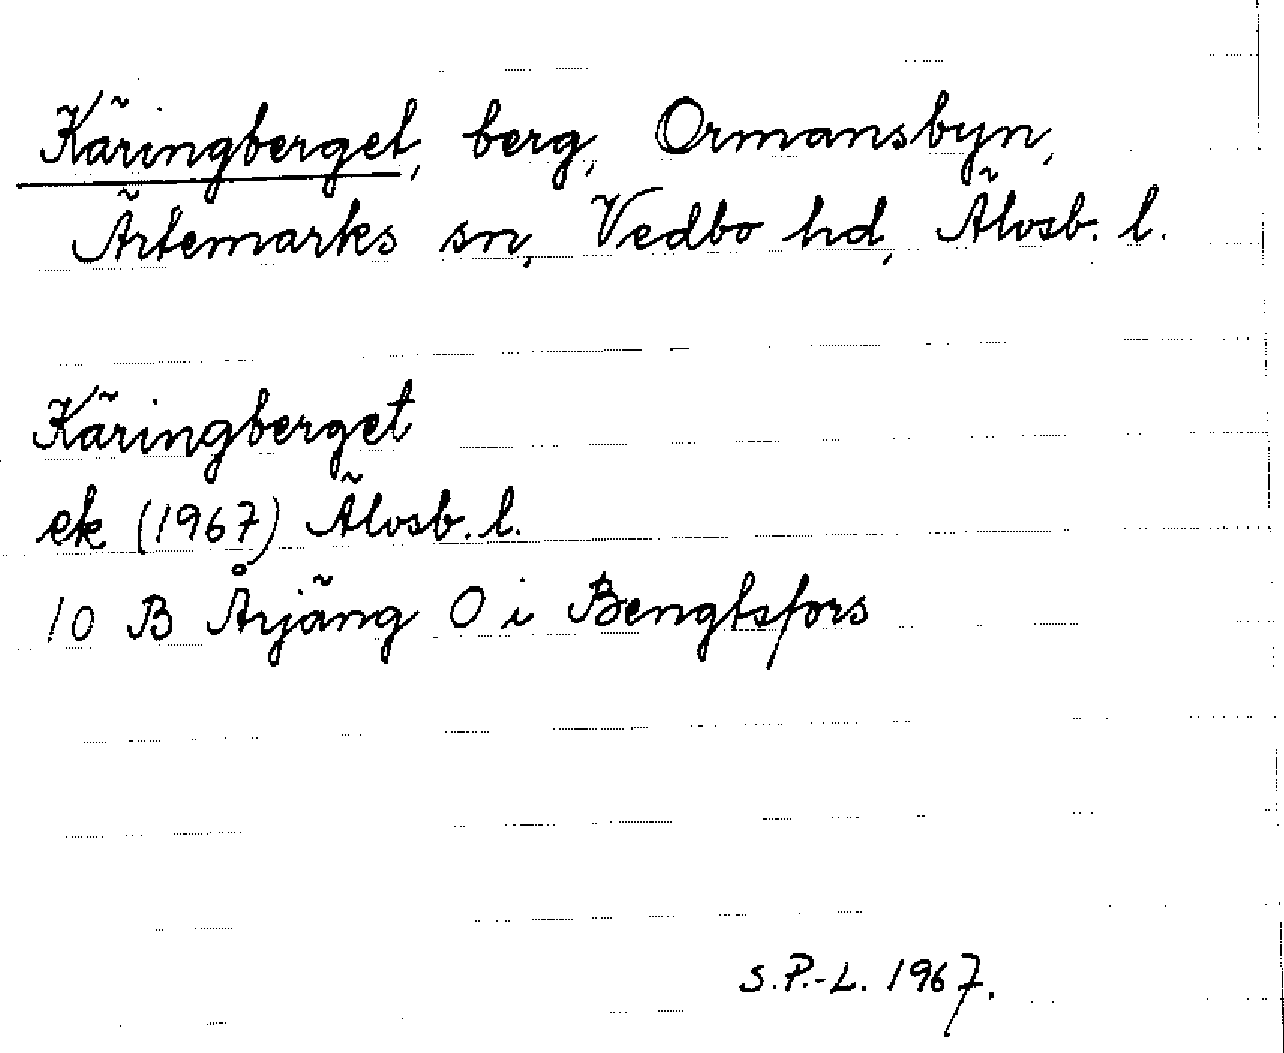 Käringberget, berg, Ormansbyn,
Ärtemarks sn, Vedbo hd, Älvsb. l.
Käringberget
ek (1967) Älvsb. l.
10 B Årjäng O i Bengtsfors
S.P.-L. 1967.